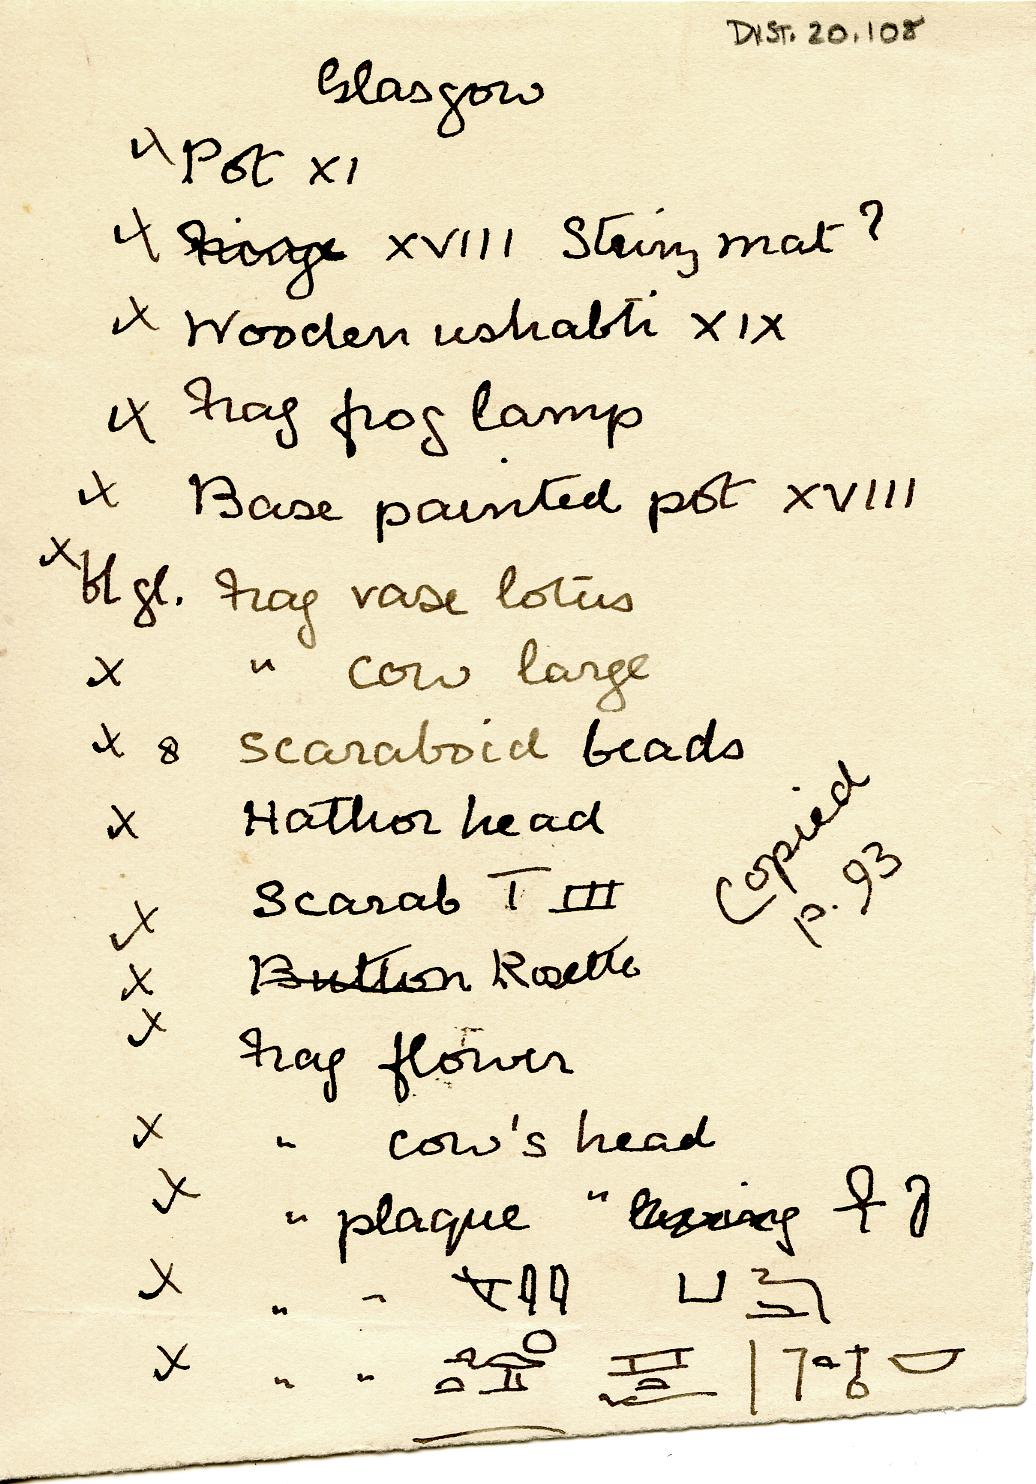 DIST. 20.108
Glasgow
Pot XI
Fringe XVIII String mat?
Wooden ushabti XIX
Frag frog lamp
Base painted pot XVIII
Bl gl. Frag vase lotus
" cow large
8 scaraboid beads
Hathor head
Scarab T III
Button Rosette
Frag flower
" cow's head
" plaque "
" "
" "
Copied
p. 93